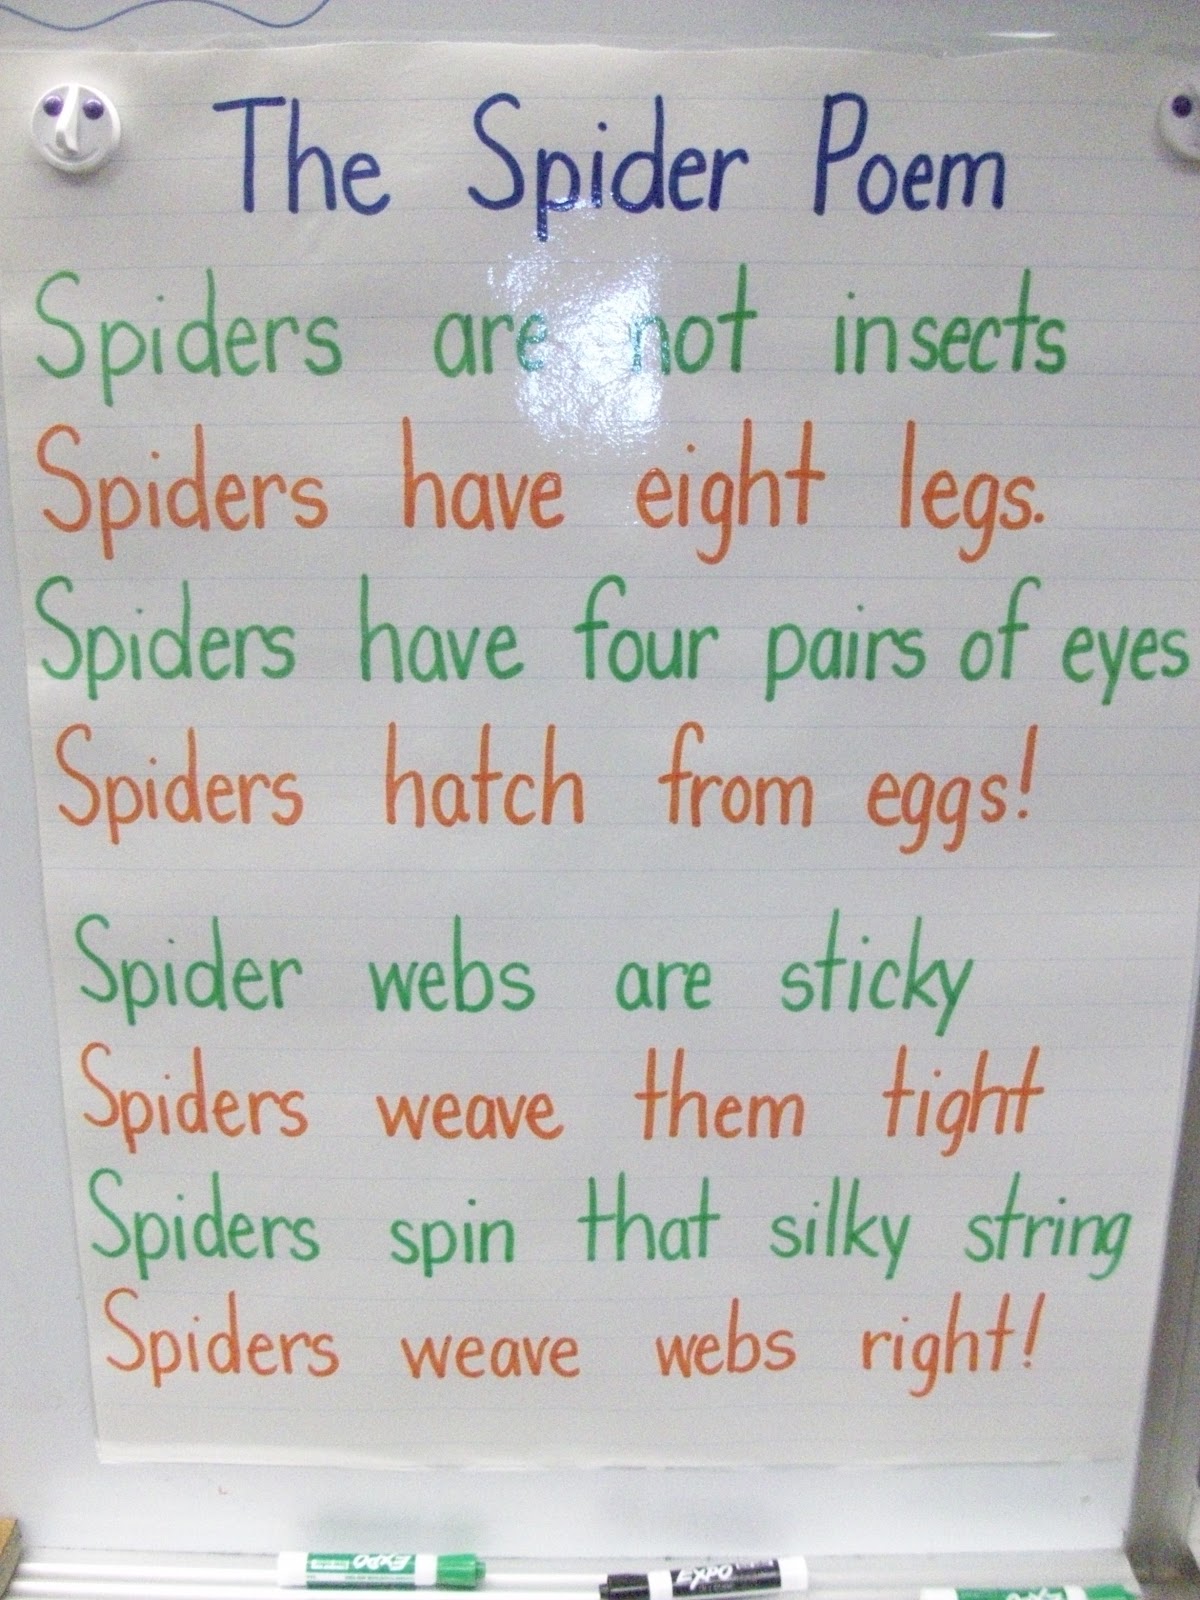 The Spider Poem
Spiders are not insects
Spiders have eight legs.
Spiders have four pairs of eyes
Spiders hatch from eggs!
Spider webs are sticky
Spiders weave them tight
Spiders spin that silky string
Spiders weave webs right!
EXPO
EXPO
EXPO